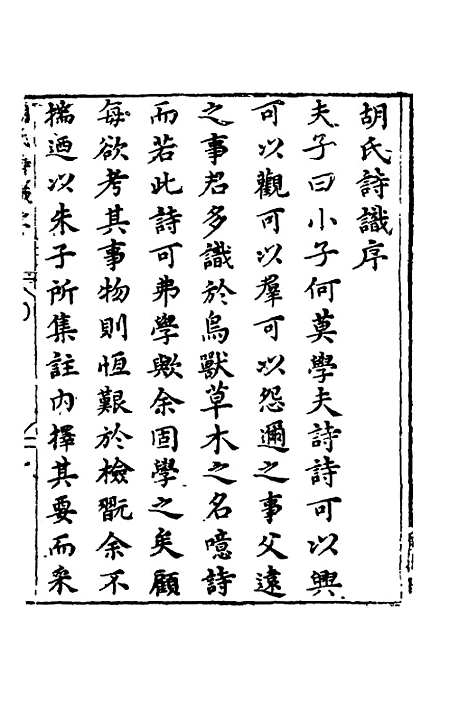 胡氏詩識序
夫子曰小子何莫學夫詩詩可以興
可以觀可以羣可以怨邇之事父遠
之事君多識於鳥獸草木之名噫詩
而若此詩可弗學歟余固學之矣顧
每欲考其事物則恆艱於檢翫余不
揣迺以朱子所集註內擇其要而采